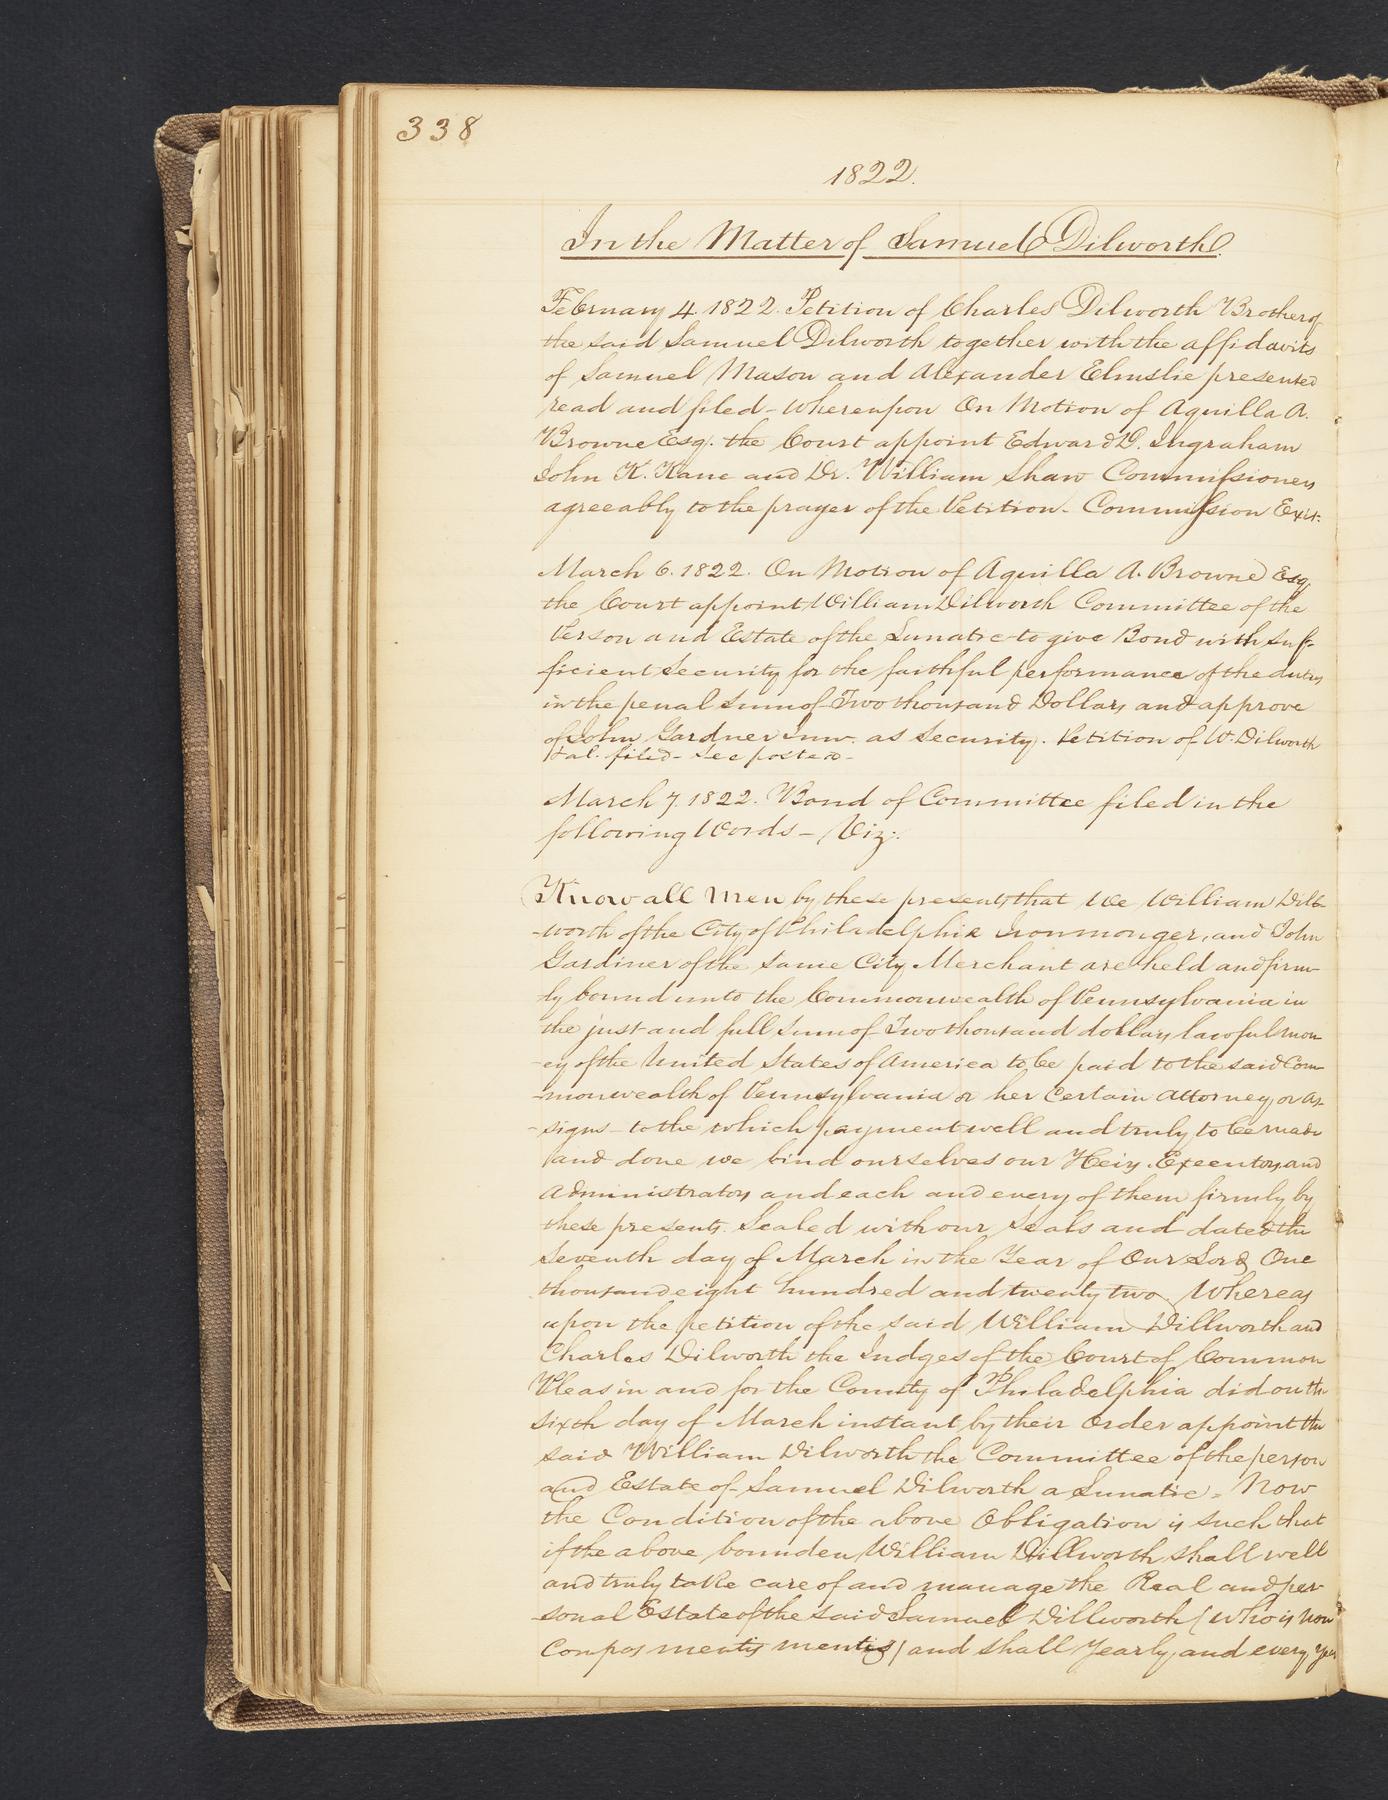 338
1822.
In the Matter of Samuel Dilworth.
February 4. 1822. Petition of Charles Dilworth Brother of
the said Samuel Dilworth together with the affidavits
of Samuel Mason and Alexander Elmslie presented
read and filed - whereupon On Motion of Aquilla A.
Browne Esq. the Court appoint Edward D. Ingraham
John K. Kane and Dr. William Shaw Commissioners
agreeably to the prayer of the Petition - Commission Exit.
March 6. 1822. On Motion of Aquilla A. Browne Esq.
the Court appoint William Dilworth Committee of the
Person and Estate of the Lunatic to give Bond with suf-
ficient security for the faithful performance of the duties
in the penal sum of Two thousand Dollars and approve
of John Gardner Junr. as Security. Petition of W. Dilworth
et al. filed - See posted -
March 7. 1822. Bond of Committee filed in the
following Words - Viz:
Know all Men by these presents that We William Dil-
-worth of the City of Philadelphia Ironmonger, and John
Gardiner of the same City Merchant are held and firm-
ly bound unto the Commonwealth of Pennsylvania in
the just and full sum of Two thousand dollars lawful mon-
-ey of the United States of America to be paid to the said Com-
-monwealth of Pennsylvania or her Certain Attorney or As-
-signs - to the which payment well and truly to be made
and done we bind ourselves our Heirs, Executors and
Administrators and each and every of them firmly by
these presents. Sealed with our seals and dated the
Seventh day of March in the Year of Our Lord, One
thousand eight hundred and twenty two. Whereas
upon the petition of the said William Dillworth and
Charles Dilworth the Judges of the Court of Common
Pleas in and for the County of Philadelphia did on the
sixth day of March instant by their Order appoint the
said William Dilworth the Committee of the person
and Estate of Samuel Dilworth a Lunatic - Now
the Condition of the above Obligation is such that
if the above bounden William Dillworth shall well
and truly take care of and manage the Real and per-
-sonal Estate of the said Samuel Dillworth (who is Non
Compos mentis mentis) and shall yearly, and every year